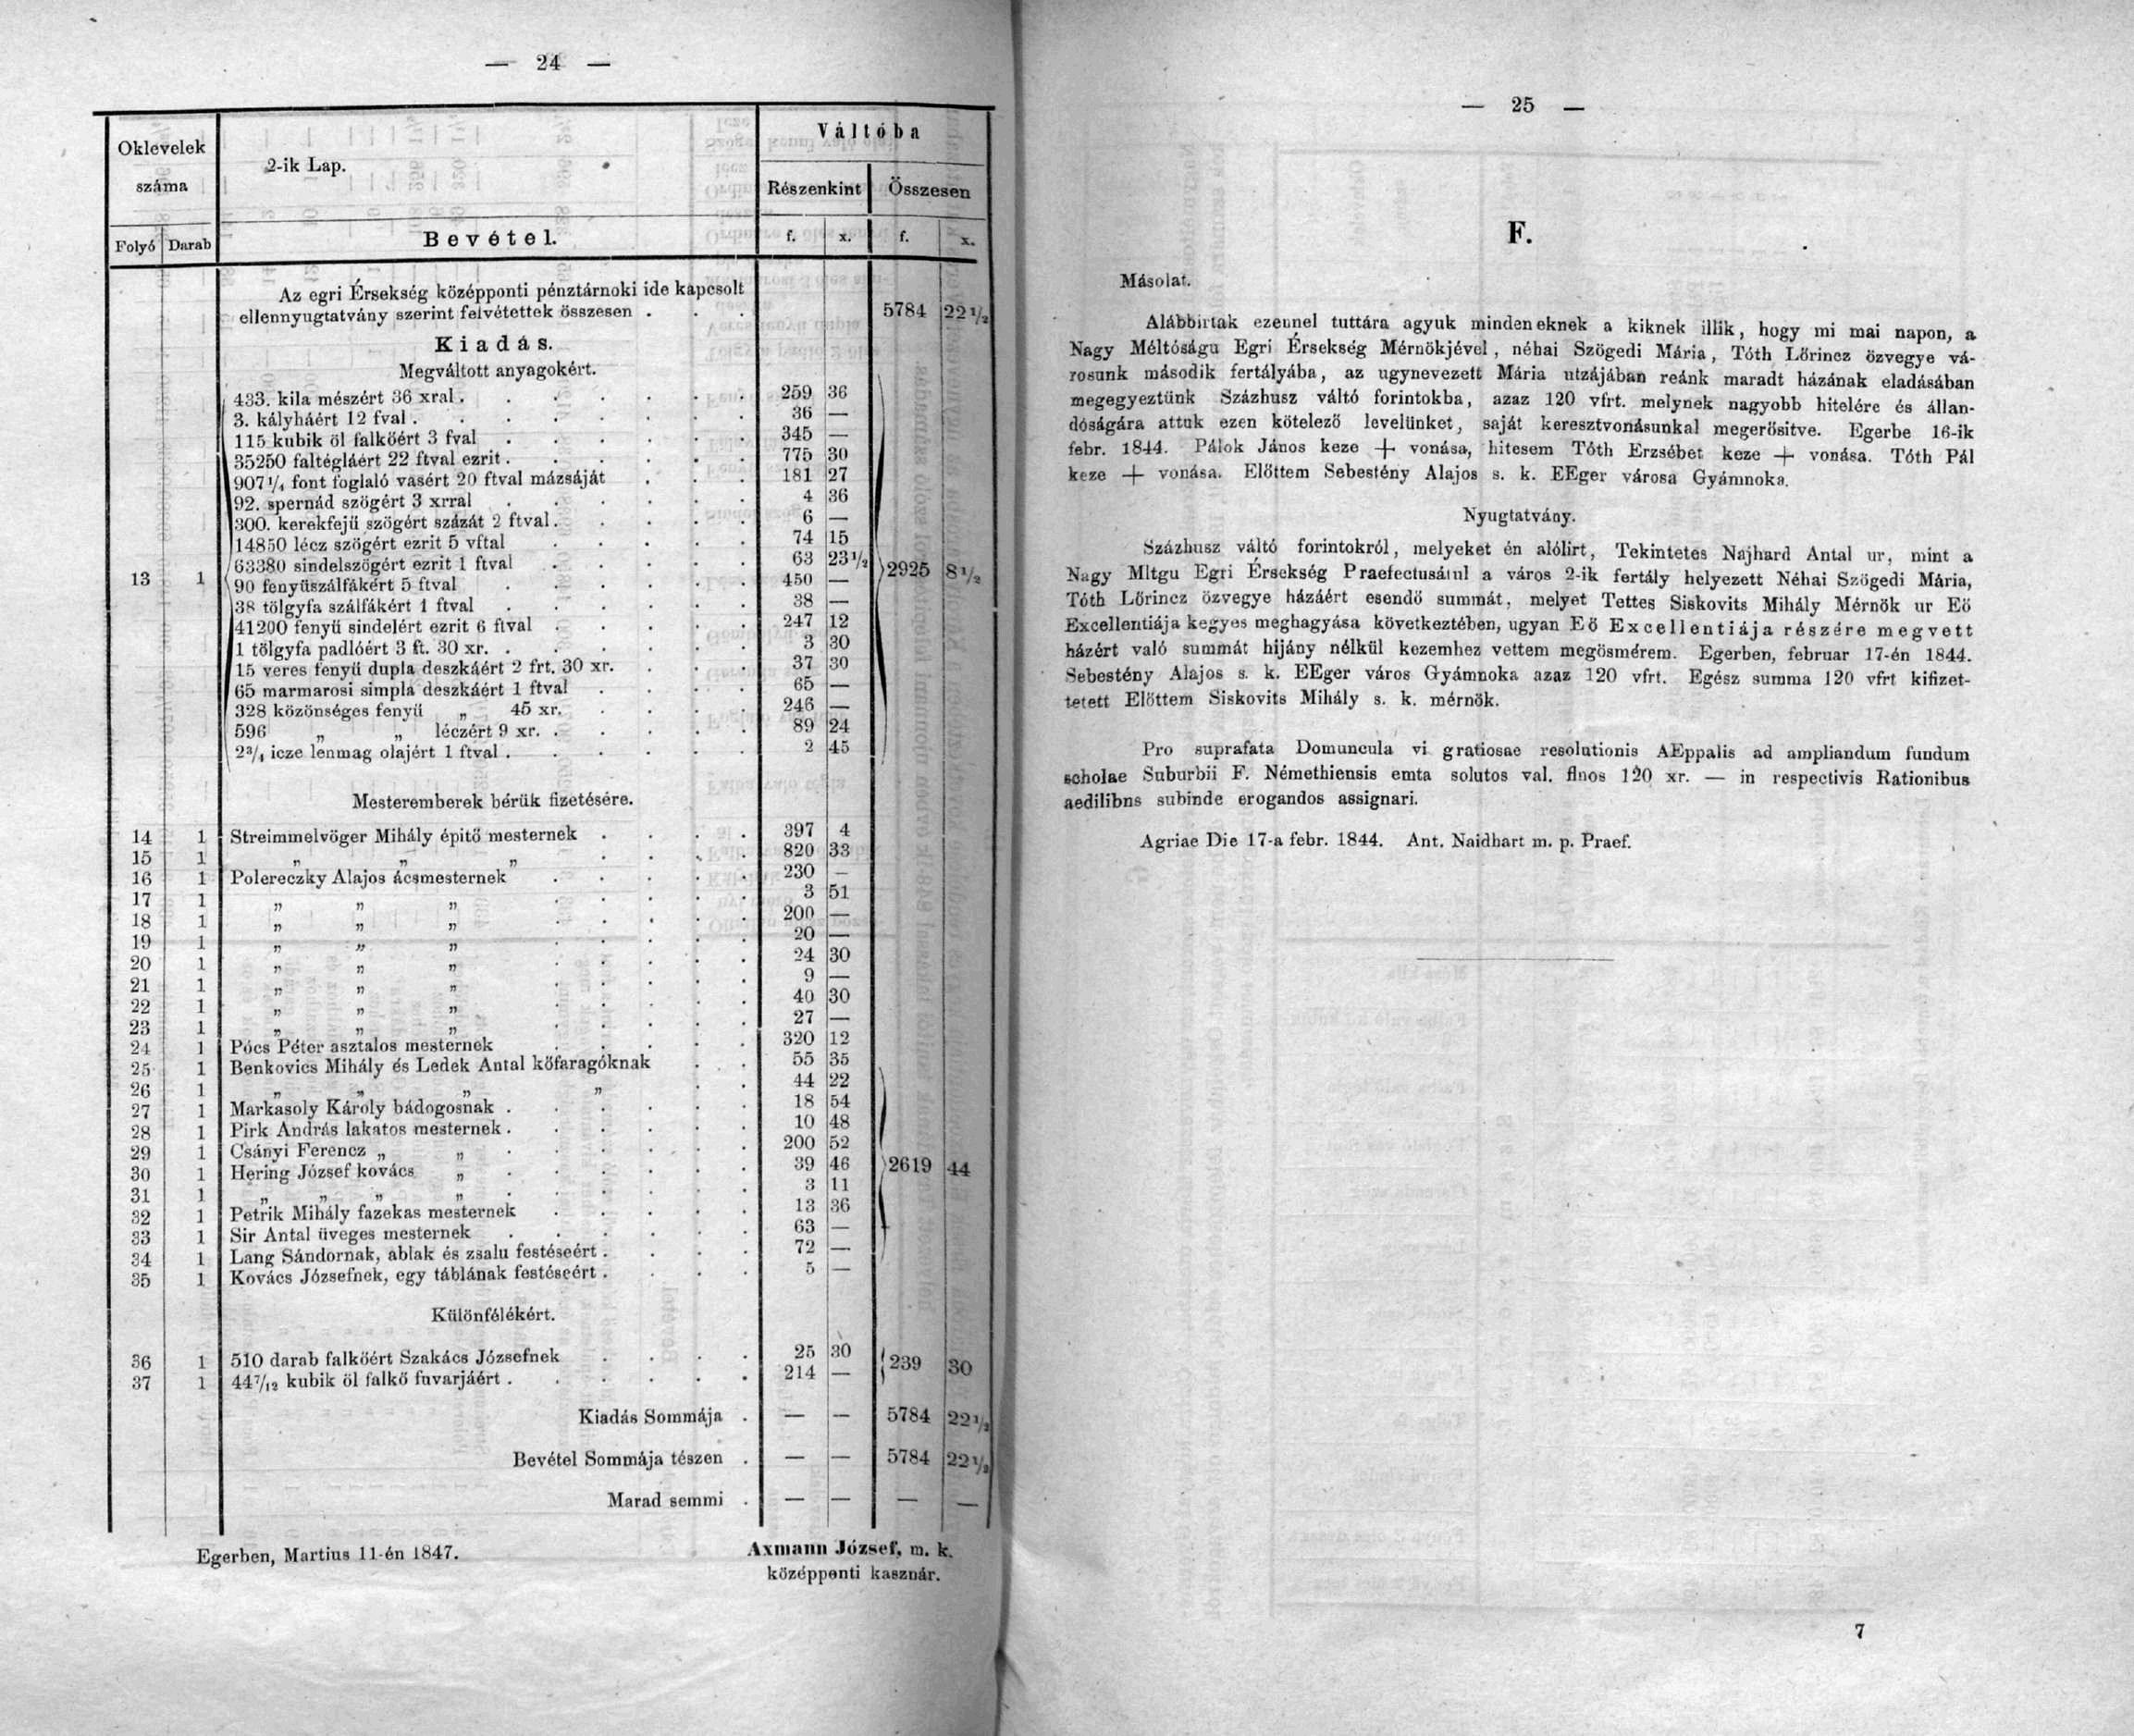 — 24 —
Oklevelek
száma
2-ik Lap.
Váltóba
Részenkint Összesen
Folyó Darab Bevétel. f. x. f. x.
Az egri Érsekség középponti pénztárnoki ide kapcsolt
ellennyugtatvány szerint felvétettek összesen . . . 5784 22 1/2
Kiadás.
Megváltott anyagokért.
433. kila mészért 36 xral . 259 36
3. kályháért 12 fval . 36 —
115 kubik öl falkőért 3 fval 345 —
35250 faltégláért 22 ftval ezrit . 775 30
907 1/4 font foglaló vasért 20 ftval mázsáját 181 27
92. spernád szögért 3 xrral 4 36
300. kerekfejü szögért százát 2 ftval . 6 —
14850 lécz szögért ezrit 5 vftal 74 15
63380 sindelszögért ezrit 1 ftval 63 23 1/2
13 1 90 fenyüszálfákért 5 ftval 450 — 2925 8 1/2
38 tölgyfa szálfákért 1 ftval 38 —
41200 fenyü sindelért ezrit 6 ftval 247 12
1 tölgyfa padlóért 3 ft. 30 xr. . 3 30
15 veres fenyü dupla deszkáért 2 frt. 30 xr. 37 30
65 marmarosi simpla deszkáért 1 ftval 65 —
328 közönséges fenyü „ 45 xr. 246 —
596 „ „ léczért 9 xr. . 89 24
2 3/4 icze lenmag olajért 1 ftval . 2 45
Mesteremberek bérük fizetésére.
14 1 Streimmelvöger Mihály épitő mesternek 397 4
15 1 „ „ „ 820 33
16 1 Polereczky Alajos ácsmesternek 230 —
17 1 „ „ „ 3 51
18 1 „ „ „ 200 —
19 1 „ „ „ 20 —
20 1 „ „ „ 24 30
21 1 „ „ „ 9 —
22 1 „ „ „ 40 30
23 1 „ „ „ 27 —
24 1 Pócs Péter asztalos mesternek 320 12
25 1 Benkovics Mihály és Ledek Antal kőfaragóknak 55 35
26 1 „ „ „ „ 44 22
27 1 Markasoly Károly bádogosnak . 18 54
28 1 Pirk András lakatos mesternek . 10 48
29 1 Csányi Ferencz „ „ 200 52
30 1 Hering József kovács „ 39 46 2619 44
31 1 „ „ „ „ 3 11
32 1 Petrik Mihály fazekas mesternek 13 36
33 1 Sir Antal üveges mesternek 63 —
34 1 Lang Sándornak, ablak és zsalu festéseért . 72 —
35 1 Kovács Józsefnek, egy táblának festéseért . 5 —
Különfélékért.
36 1 510 darab falkőért Szakács Józsefnek 25 30 239 30
37 1 44 7/12 kubik öl falkő fuvarjáért . 214 —
Kiadás Sommája . — — 5784 22 1/2
Bevétel Sommája tészen . — — 5784 22 1/2
Marad semmi . — — — —
Egerben, Martius 11-én 1847.
Axmann József, m. k.
középponti kasznár.
— 25 —
F.
Másolat.
Alábbirtak ezennel tuttára agyuk mindeneknek a kiknek illik, hogy mi mai napon, a
Nagy Méltóságu Egri Érsekség Mérnökjével, néhai Szögedi Mária, Tóth Lőrincz özvegye vá-
rosunk második fertályába, az ugynevezett Mária utzájában reánk maradt házának eladásában
megegyeztünk Százhusz váltó forintokba, azaz 120 vfrt. melynek nagyobb hitelére és állan-
dóságára attuk ezen kötelező levelünket, saját keresztvonásunkal megerősitve. Egerbe 16-ik
febr. 1844. Pálok János keze + vonása, hitesem Tóth Erzsébet keze + vonása. Tóth Pál
keze + vonása. Előttem Sebestény Alajos s. k. EEger városa Gyámnoka.
Nyugtatvány.
Százhusz váltó forintokról, melyeket én alólirt, Tekintetes Najhard Antal ur, mint a
Nagy Mltgu Egri Érsekség Praefectusátul a város 2-ik fertály helyezett Néhai Szögedi Mária,
Tóth Lőrincz özvegye házáért esendő summát, melyet Tettes Siskovits Mihály Mérnök ur Eő
Excellentiája kegyes meghagyása következtében, ugyan Eő Excellentiája részére megvett
házért való summát hijány nélkül kezemhez vettem megösmérem. Egerben, februar 17-én 1844.
Sebestény Alajos s. k. EEger város Gyámnoka azaz 120 vfrt. Egész summa 120 vfrt kifizet-
tetett Előttem Siskovits Mihály s. k. mérnök.
Pro suprafata Domuncula vi gratiosae resolutionis AEppalis ad ampliandum fundum
scholae Suburbii F. Némethiensis emta solutos val. flnos 120 xr. — in respectivis Rationibus
aedilibns subinde erogandos assignari.
Agriae Die 17-a febr. 1844. Ant. Naidhart m. p. Praef.
7